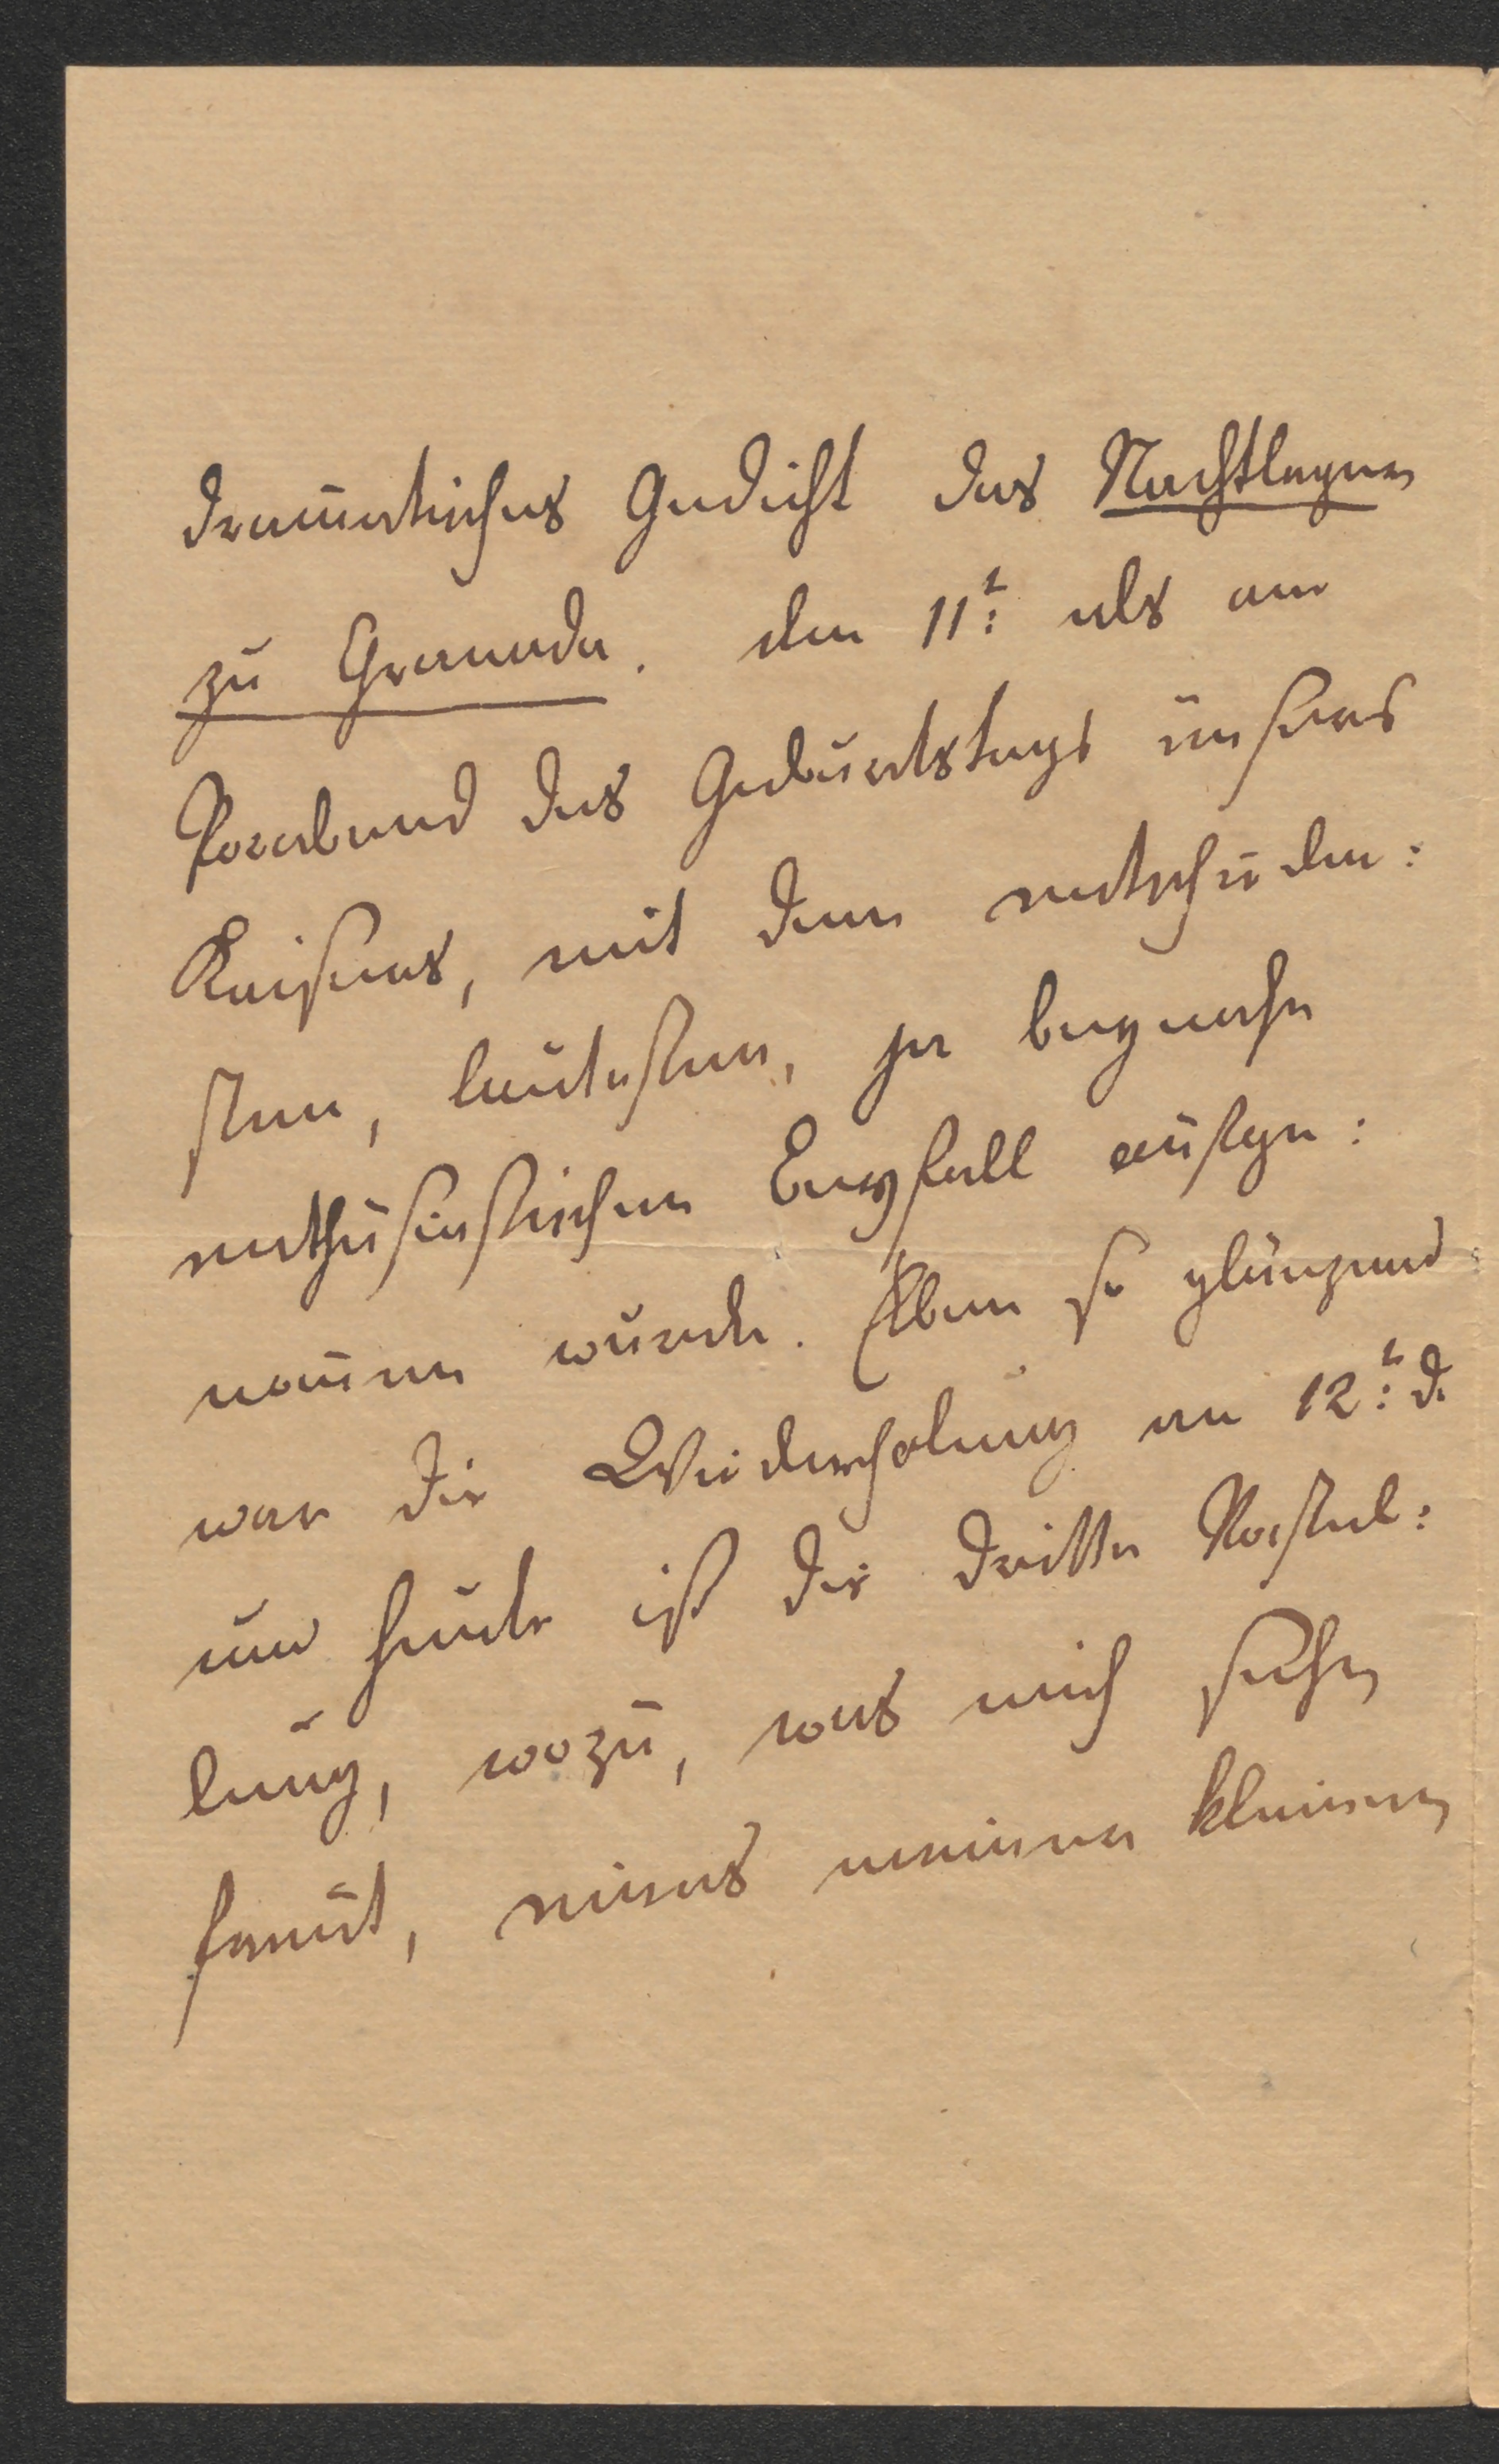 dramatisches Gedicht das Nachtlager
zu Granada. den 11t: als am
Vorabend des Geburtstags unsers
Kaisers, mit dem entschieden:
sten, lautesten, ja beynahe
enthusiastischen Beyfall aufge:
nom̄en wurde. Eben so glänzend
war die Wiederholung am 12t: d.
und heute ist die dritte Vorstel:
lung, wozu, was mich sehr
freut, eines meiner kleinen